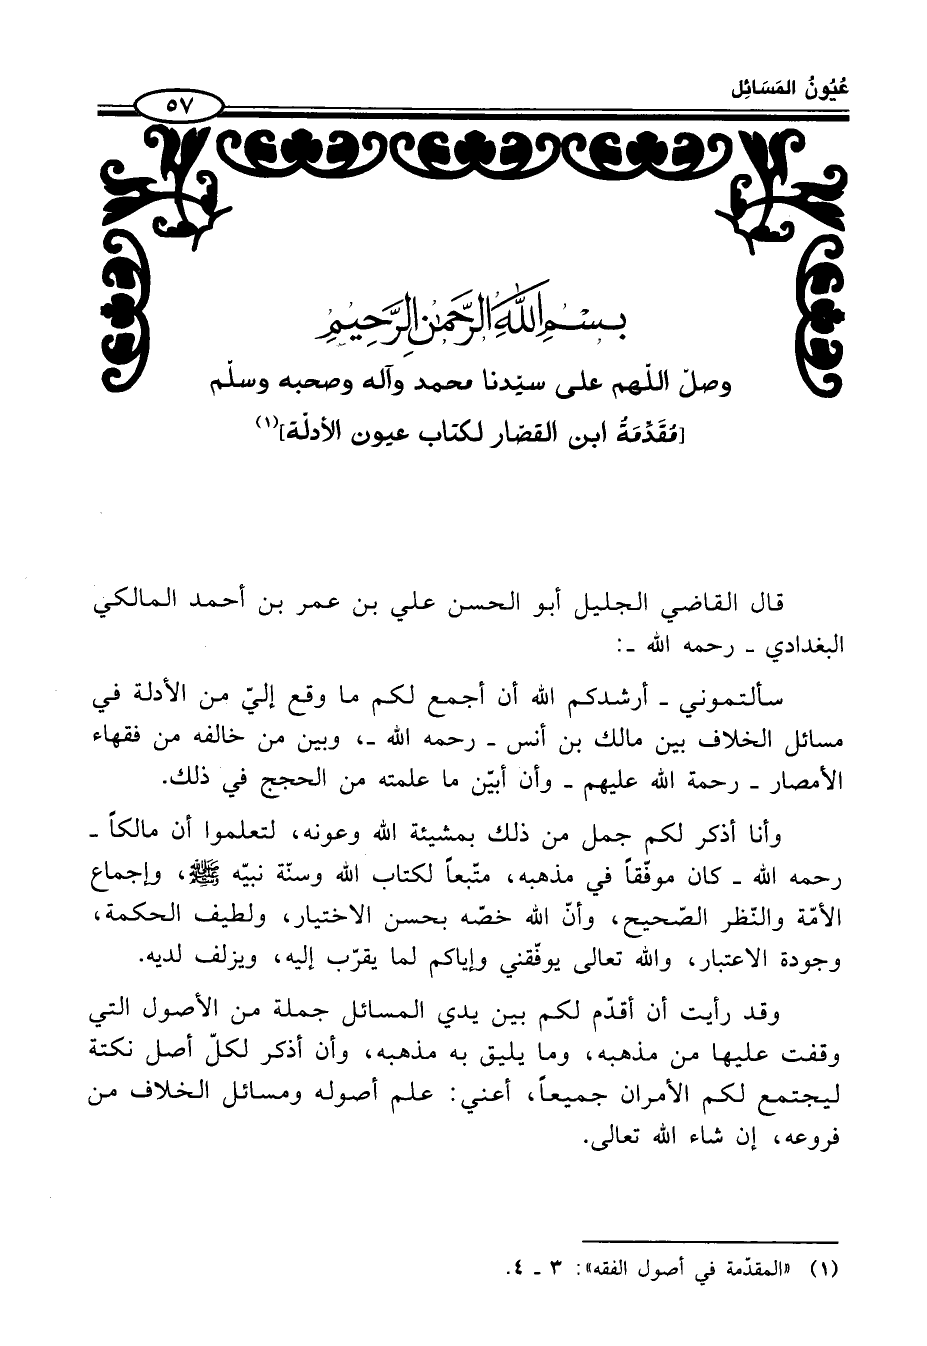 عُيُونُ المَسَائِل
٥٧
بِسْمِ اللَّهِ الرَّحْمَٰنِ الرَّحِيمِ
وصلّ اللّهم على سيّدنا محمد وآله وصحبه وسلّم
[مُقَدِّمَةُ ابن القصّار لكتاب عيون الأدلّة](١)
قال القاضي الجليل أبو الحسن علي بن عمر بن أحمد المالكي
البغدادي ـ رحمه الله ـ:
سألتموني ـ أرشدكم الله أن أجمع لكم ما وقع إليّ من الأدلة في
مسائل الخلاف بين مالك بن أنس ـ رحمه الله ـ، وبين من خالفه من فقهاء
الأمصار ـ رحمة الله عليهم ـ وأن أبيّن ما علمته من الحجج في ذلك.
وأنا أذكر لكم جمل من ذلك بمشيئة الله وعونه، لتعلموا أن مالكاً ـ
رحمه الله ـ كان موفّقاً في مذهبه، متّبعاً لكتاب الله وسنّة نبيّه ﷺ، وإجماع
الأمّة والنّظر الصّحيح، وأنّ الله خصّه بحسن الاختيار، ولطيف الحكمة،
وجودة الاعتبار، والله تعالى يوفّقني وإياكم لما يقرّب إليه، ويزلف لديه.
وقد رأيت أن أقدّم لكم بين يدي المسائل جملة من الأصول التي
وقفت عليها من مذهبه، وما يليق به مذهبه، وأن أذكر لكلّ أصل نكتة
ليجتمع لكم الأمران جميعاً، أعني: علم أصوله ومسائل الخلاف من
فروعه، إن شاء الله تعالى.
(١) «المقدّمة في أصول الفقه»: ٣ ـ ٤.